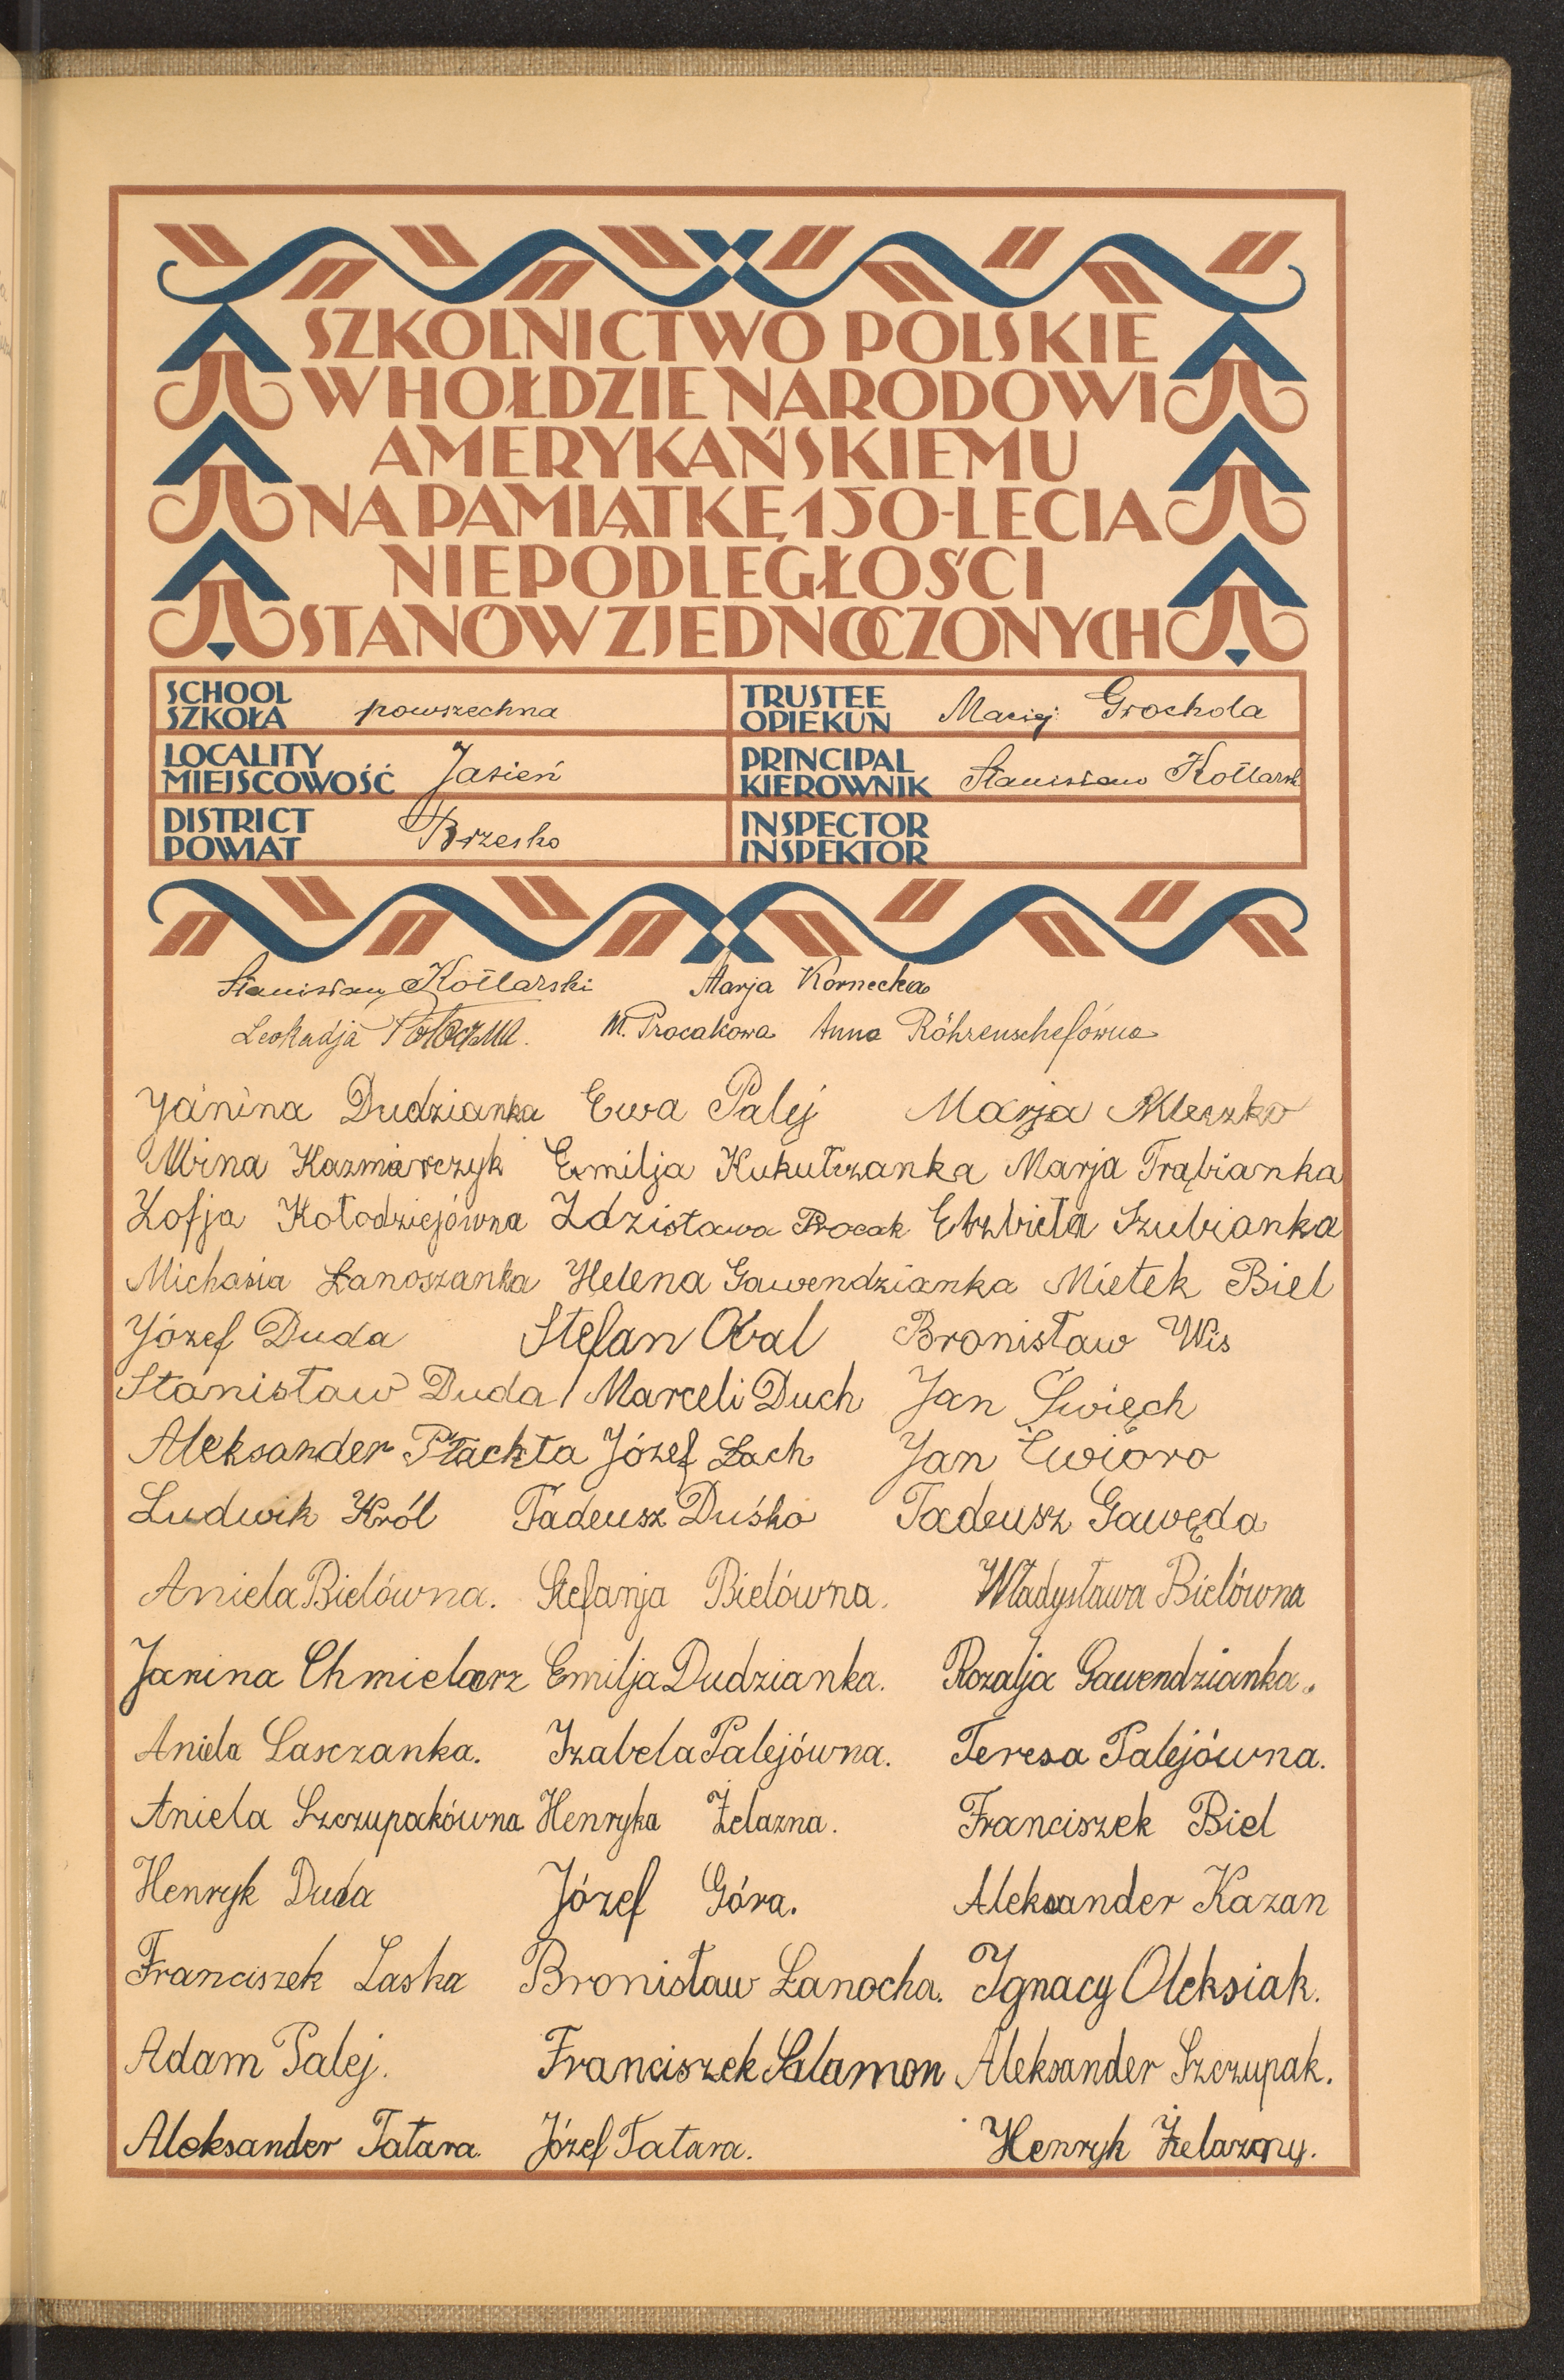 SZKOLNICTWO POLSKIE
W HOŁDZIE NARODOWI
AMERYKAŃSKIEMU
NA PAMIĄTKĘ 150-LECIA
NIEPODLEGŁOŚCI
STANÓW ZJEDNOCZONYCH
SCHOOL
SZKOŁA powszechna
TRUSTEE
OPIEKUN Maciej Grochola
LOCALITY
MIEJSCOWOŚĆ Jasień
PRINCIPAL
KIEROWNIK Stanisław Kollarsk
DISTRICT
POWIAT Brzesko
INSPECTOR
INSPEKTOR
Stanisław Kollarski Marja Kornecka
Leokadja M. Procakowa Anna Röhrenschefówna
Janina Dudzianka Ewa Palej Marja Mleczko
Mina Kazmiarczyk Emilja Kukulrzanka Marja Trąbianka
Zofja Kołodziejówna Zdzisława Procak Elżbieta Szubianka
Michasia Łanoszanka Helena Gawendzianka Mietek Biel
Józef Duda Stefan Obal Bronisław Wis
Stanisław Duda Marceli Duch Jan Święch
Aleksander Płachta Józef Łach Jan Ćwioro
Ludwik Król Tadeusz Duśko Tadeusz Gawęda
Aniela Bielówna. Stefanja Bielówna. Władysława Bielówna
Janina Chmielarz Emilja Dudzianka. Rozalja Gawendzianka.
Aniela Lasczanka. Izabela Palejówna. Teresa Palejówna.
Aniela Szczupakówna Henryka Żelazna. Franciszek Biel
Henryk Duda Józef Góra. Aleksander Kazan
Franciszek Laska Bronisław Łanocha. Ignacy Oleksiak.
Adam Palej. Franciszek Salamon Aleksander Szczupak.
Aleksander Tatara. Józef Tatara. Henryk Żelazny.